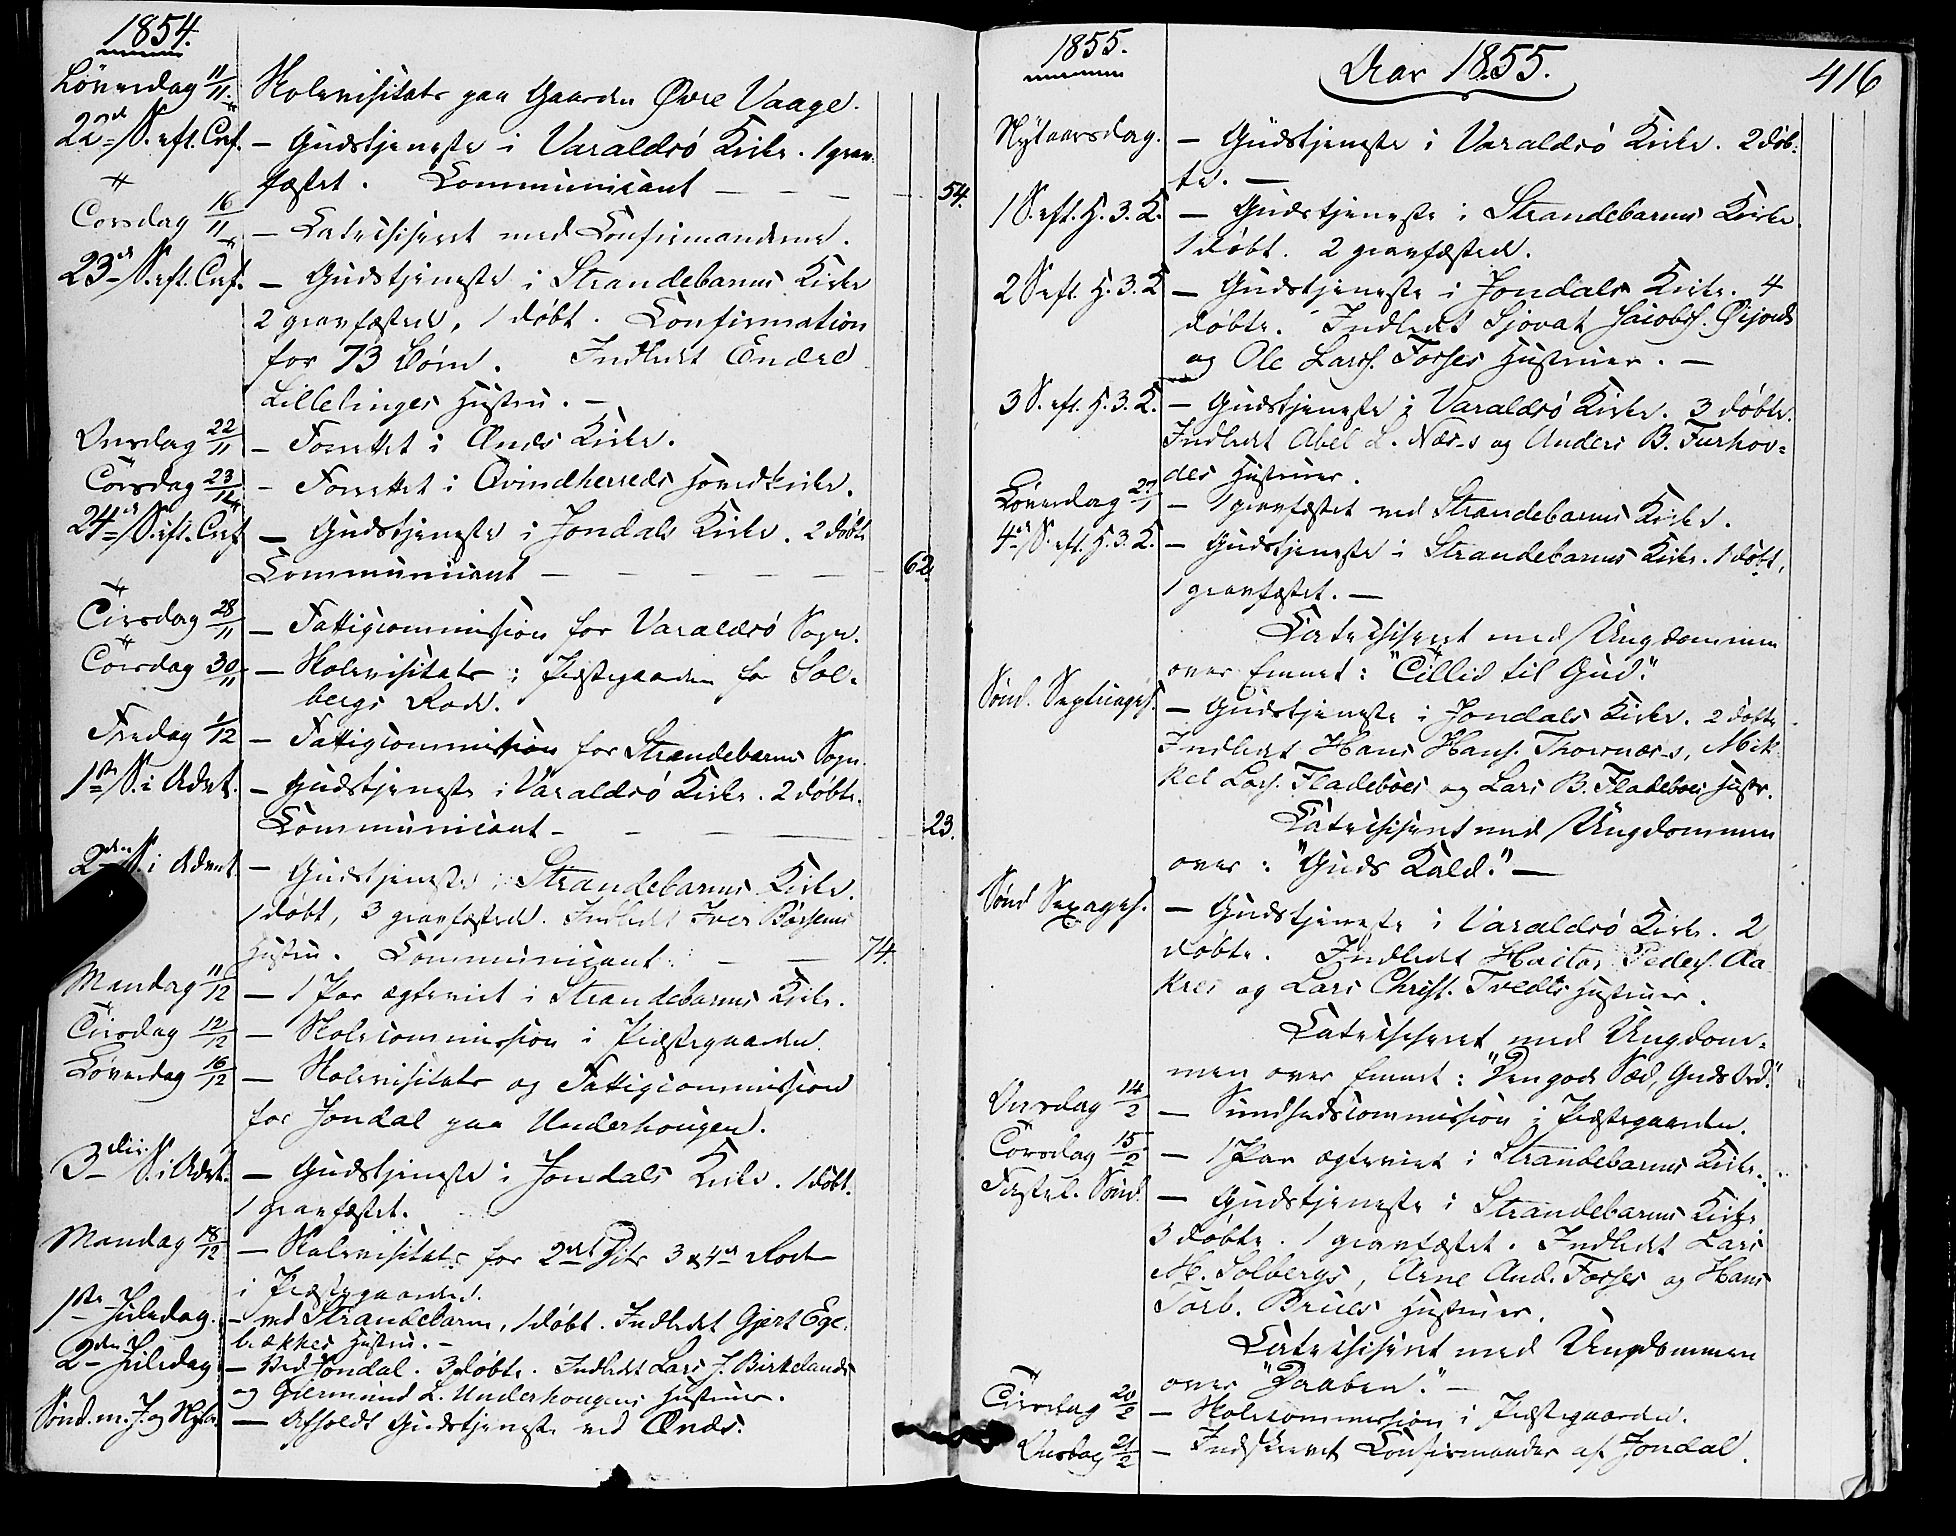 1854.
Löverdag 11/11. Skolevisitats paa Gaarden Øvre Vaage.
22nd S. eft. Tref. — Gudstjeneste i Varaldsö Kirke. 1 grav-
fæstet. Communicant — — — 54.
Torsdag 16/11 — Catechiseret med Confirmanderne.
23de S. eft. Tref. — Gudstjeneste i Strandebarms Kirke
2 gravfæstede, 1 døbt. Confirmation
for 73 Børn. Indledt Endre
Lillelinges Hustru. —
Onsdag 22/11 — Forrettet i Ænæs Kirke.
Torsdag 23/11 — Forrettet i Qvindherreds Hovedkirke.
24de S. eft. Tref. — Gudstjeneste i Jondals Kirke. 2 døbte
Communicant — — — — — 62.
Tirsdag 28/11 — Fattigcommission for Varaldsö Sogn.
Torsdag 30/11 — Skolevisitats i Præstegaarden for Sol-
bergs Rode.
Fredag 1/12 — Fattigcommission for Strandebarms Sogn
1ste S. i Advt. — Gudstjeneste i Varaldsö Kirke. 2 døbte.
Communicant — — — 23.
2den S. i Advent — Gudstjeneste i Strandebarms Kirke.
1 døbt, 3 gravfæstede. Indledt Iver Børsems
Hustru. Communicant: — — 74.
Mandag 11/12 — 1 Par ægteviet i Strandebarms Kirke.
Tirsdag 12/12 — Skolecommission i Præstegaarden.
Löverdag 16/12 — Skolevisitats og Fattigcommission
for Jondal paa Underhougen.
3die S. i Advt. — Gudstjeneste i Jondals Kirke. 1 døbt.
1 gravfæstet.
Mandag 18/12 — Skolevisitats for 2det 3 & 4de Rode
i Præstegaarden.
1ste Juledag. — ved Strandebarm, 1 døbt. Indledt Gjert Ege-
bækkes Hustru. —
2den Juledag — Ved Jondal. 3 døbte. Indledt Lars J. Birkelands
og Germund L. Underhougens Hustruer.
Sönd. m. J. og Nytr. — Afholdt Gudstjeneste ved Ænæs.
1855. Aar 1855. 416
Nytaarsdag. — Gudstjeneste i Varaldsö Kirke. 2 døb-
te. —
1 S. eft. H. 3. K. — Gudstjeneste i Strandebarms Kirke.
1 døbt. 2 gravfæstede.
2 S. eft. H. 3. K — Gudstjeneste i Jondals Kirke. 4
døbte. Indledt Sjovat Jacobs.
og Ole Larss. Torsses Hustruer. —
3 S. eft. H. 3. K. — Gudstjeneste i Varaldsö Kirke. 3 døbte.
Indledt Abel L. Næs-s og Anders B. Furhov-
des Hustruer.
Löverdag 27/1 — 1 gravfæstet ved Strandebarms Kirke.
4de S. eft. H. 3. K. — Gudstjeneste i Strandebarms Kirke. 1 døbt,
1 gravfæstet. —
Catechiseret med Ungdommen
over Emnet: "Tillid til Gud."
Sönd. Septuages. — Gudstjeneste i Jondals Kirke. 2 døbte
Indledt Hans Hans. Thornæs-s, Mik-
kel Lars. Fladeböes og Lars B. Fladeböes Hustr.
Catechiseret med Ungdommen
over: "Guds Kald." —
Sönd Sexages. — Gudstjeneste i Varaldsö Kirke. 2
døbte. Indledt Haktor Peders. Aa
kres og Lars Christ. Tvedts Hustruer.
Catechiseret med Ungdom-
men over Emnet: "Den gode Sæd, Guds Ord."
Onsdag 14/2 — Sundhedscommission i Præstegaarden.
Torsdag 15/2 — 1 Par ægteviet i Strandebarms Kirke.
Fastel. Sönd. — Gudstjeneste i Strandebarms Kirke
3 døbte. 1 gravfæstet. Indledt Lars
M. Solbergs, Arne And. Torsses og Hans
Torb. Hustruer.
Catechiseret med Ungdommen
over "Daaben." —
Tirsdag 20/2 — Skolecommission i Præstegaarden.
Onsdag 21/2 — Indskrevet Confirmander af Jondal.